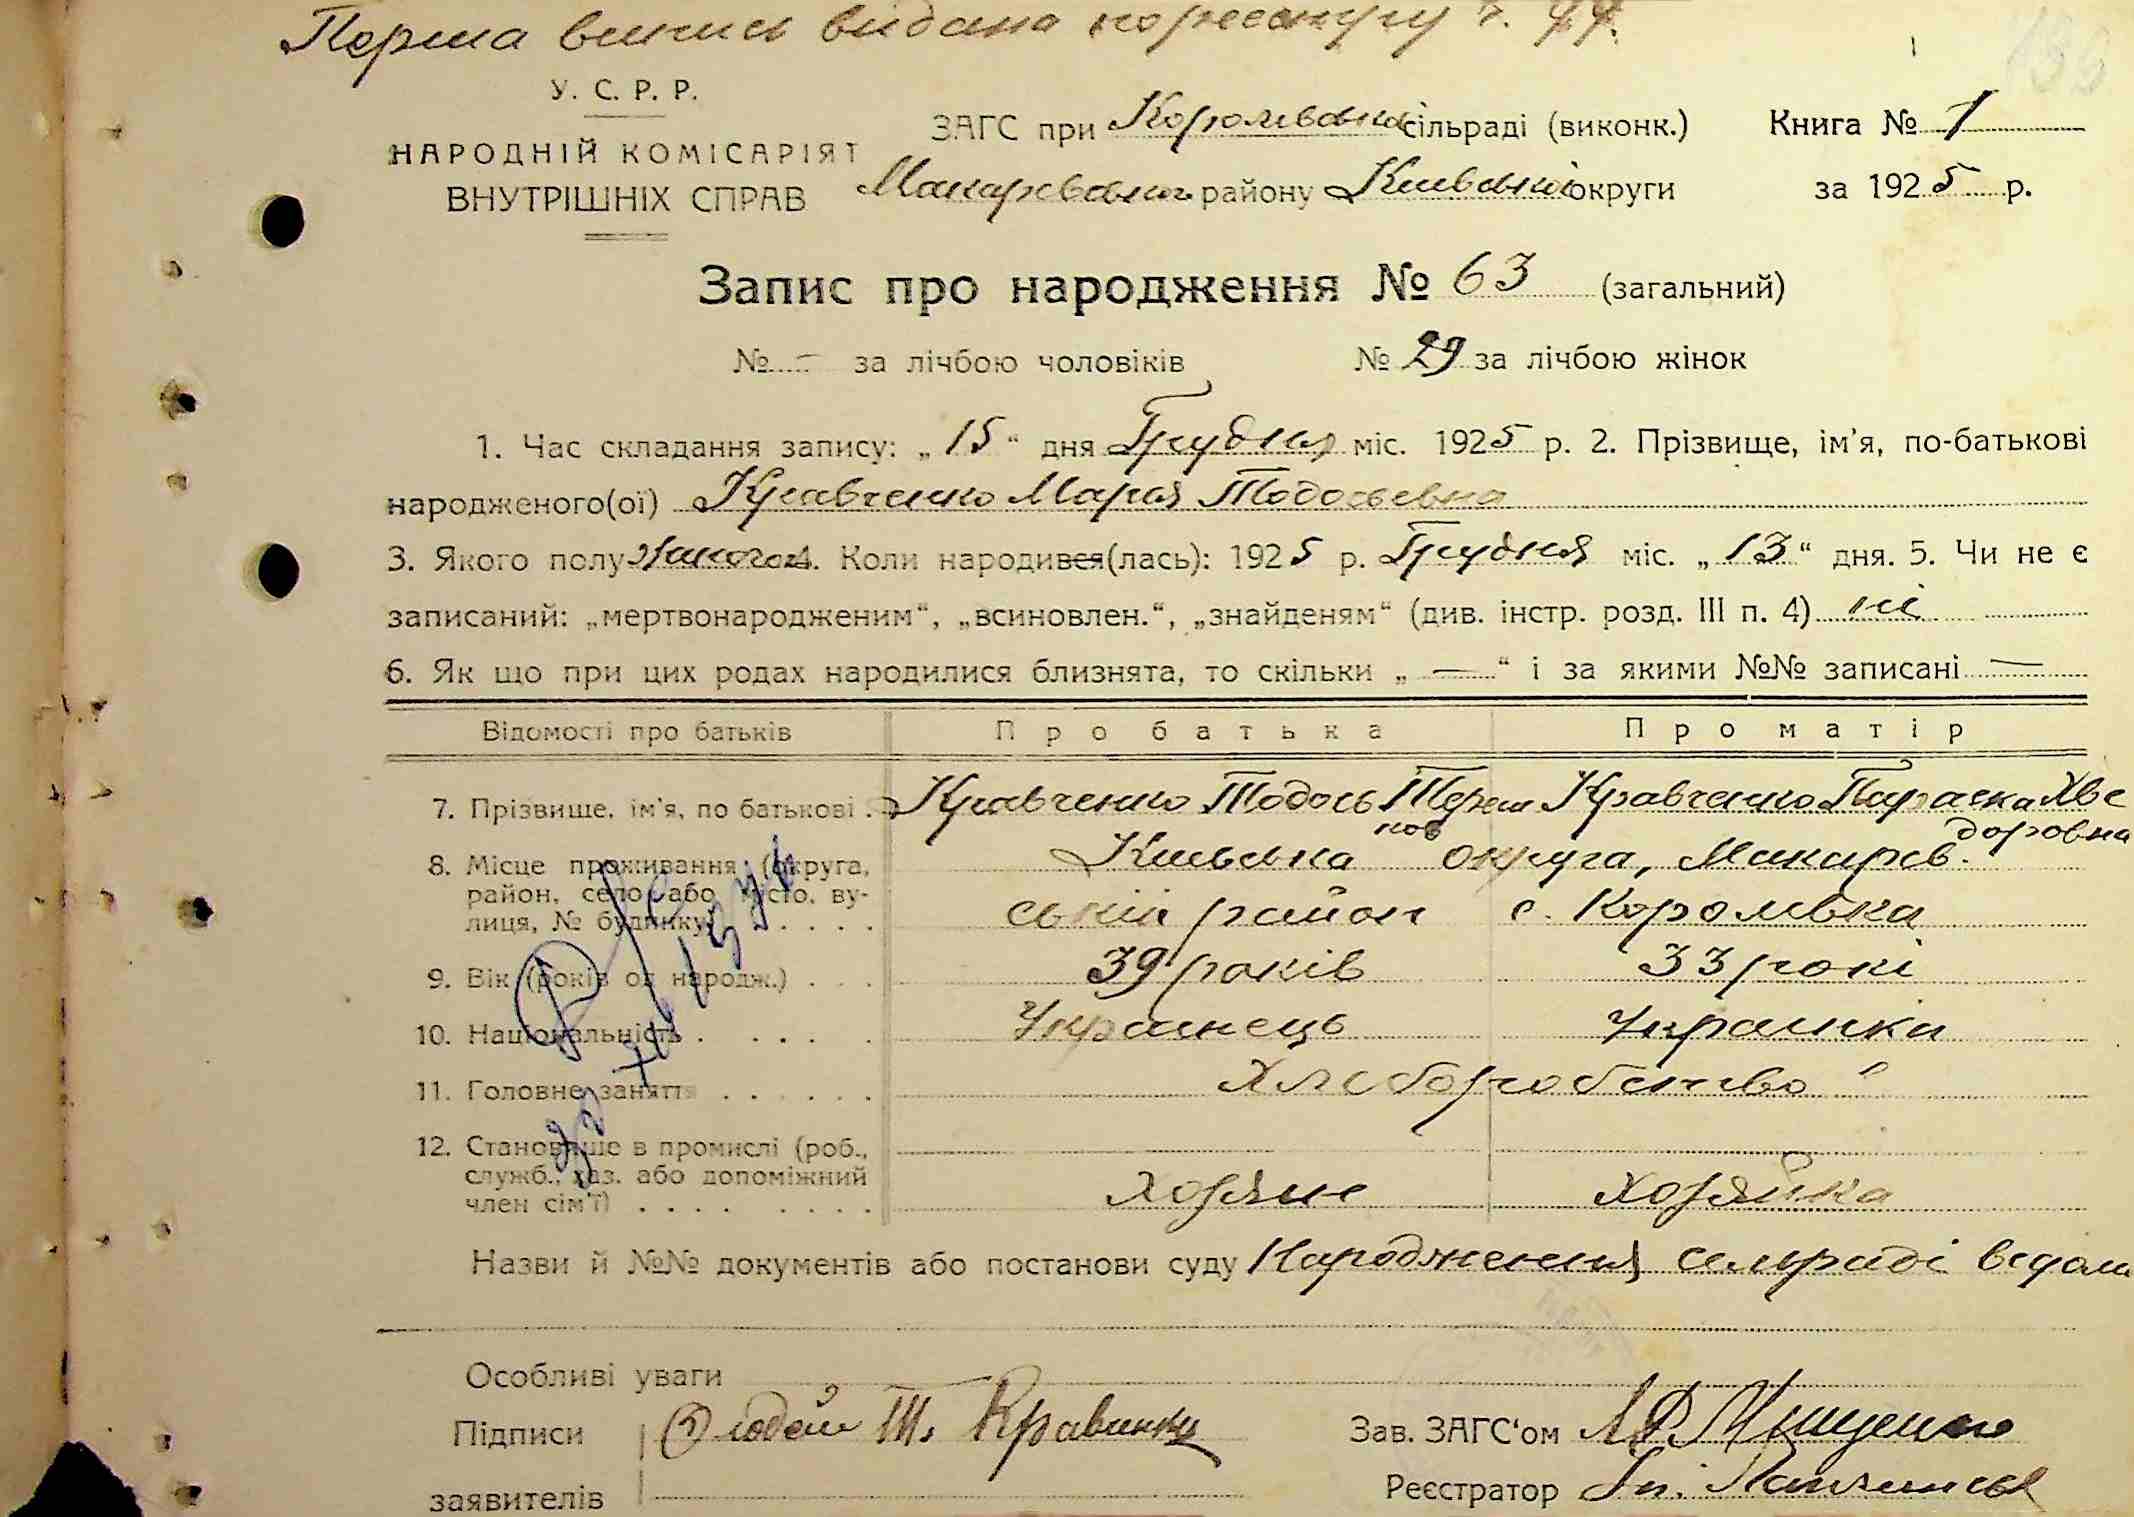 Перша випись видана
У. С. Р. Р.
НАРОДНІЙ КОМІСАРІЯТ
ВНУТРІШНІХ СПРАВ
ЗАГС при Королівська сільраді (виконк.) Книга № 1
Макарівського району Київської округи за 1925 р.
Запис про народження № 63 (загальний)
№ — за лічбою чоловіків № 29 за лічбою жінок
1. Час складання запису: „15“ дня Грудня міс. 1925 р. 2. Прізвище, ім'я, по-батькові
народженого(ої) Кравченко Марія Тодосьевна
3. Якого полу 4. Коли народився(лась): 1925 р. Грудня міс. „13“ дня. 5. Чи не є
записаний: „мертвонародженим“, „всиновлен.“, „знайденям“ (див. інстр. розд. III п. 4) ні
6. Як що при цих родах народилися близнята, то скільки „—“ і за якими №№ записані —
Відомості про батьків Про батька Про матір
7. Прізвище, ім'я, по батькові . Кравченко Тодось Кравченко Параска Хве
доровна
8. Місце проживання (округа, Київська округа, Макарів.
район, село або місто, ву- ський район с. Королівка
лиця, № будинку) . . . .
9. Вік (років од народж.) . . . 39 років 33 рокі
10. Національність . . . . . Украінець Украінка
11. Головне заняття . . . . . . Хліборобство
12. Становище в промислі (роб.,
служб., хаз. або допоміжний Хозяїн Хозяйка
член сім'ї) . . . . . . . .
Назви й №№ документів або постанови суду Народження сельраді відомо
Особливі уваги
Підписи Т. Кравченко Зав. ЗАГС'ом
заявителів Реєстратор